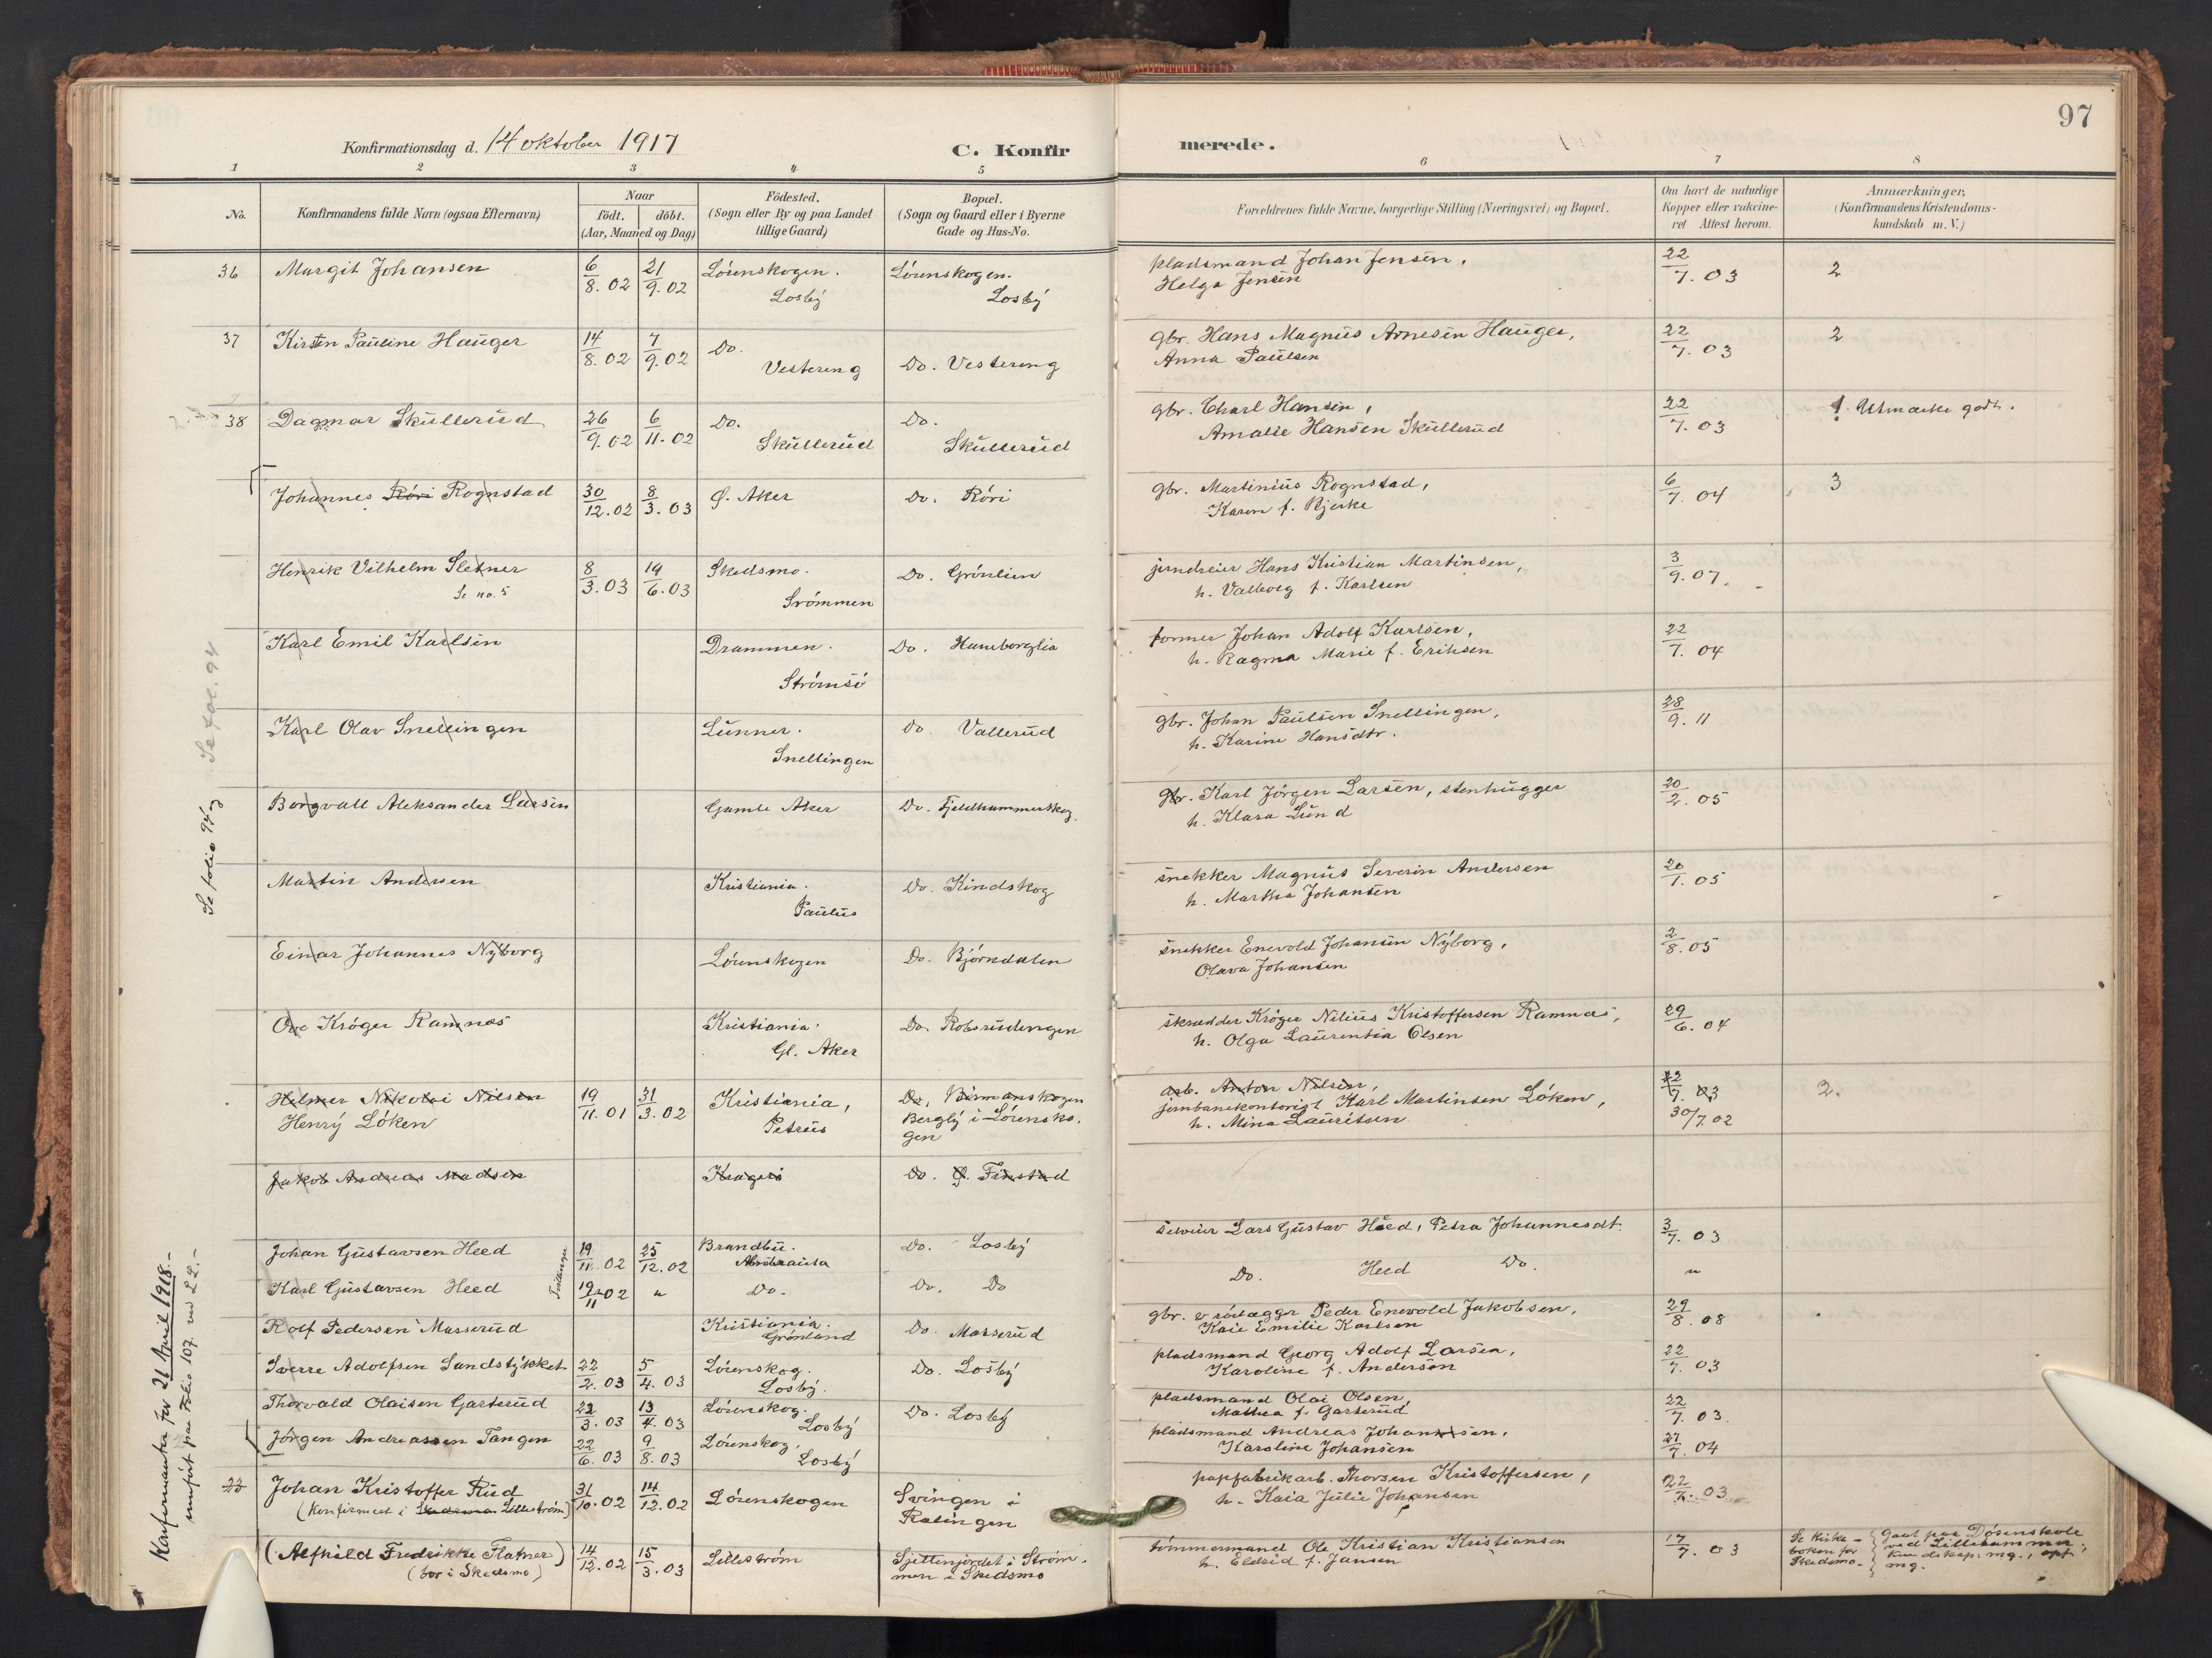 97
Konfirmationsdag d. 14 oktober 1917
C. Konfirmerede.
1 2 3 4 5 6 7 8
No.
Konfirmandens fulde Navn (ogsaa Efternavn)
Naar
födt. döbt.
(Aar, Maaned og Dag)
Födested.
(Sogn eller By og paa Landet
tillige Gaard)
Bopæl.
(Sogn og Gaard eller i Byerne
Gade og Hus-No.
Forældrenes fulde Navne, borgerlige Stilling (Næringsvei) og Bopæl.
Om havt de naturlige
Kopper eller vakcine-
ret Attest herom.
Anmærkninger,
(Konfirmandens Kristendoms-
kundskab m. V.)
36 Margit Johansen 6/8. 02 21/9. 02 Lörenskogen. Losby Lörenskogen. Losby pladsmand Johan Jensen, Helga Jensen 22/7. 03 2
37 Kirsten Pauline Hauger 14/8. 02 7/9. 02 Do. Vestereng Do. Vestereng gbr. Hans Magnus Arnesen Hauger, Anna Paulsen 22/7. 03 2
38 Dagmar Skullerud 26/9. 02 6/11. 02 Do. Skullerud Do. Skullerud gbr. Charl Hansen, Amalie Hansen Skullerud 22/7. 03 1. Utmærke godt.
Johannes Röri Rognstad 30/12. 02 8/3. 03 Ø. Aker Do. Röri gbr. Martinius Rognstad, Karen f. Bjerke 6/7. 04 3
Henrik Vilhelm Sletner Se no. 5 8/3. 03 14/6. 03 Skedsmo. Srömmen Do. Grönlien jerndreier Hans Kristian Martinsen, h. Valborg f. Karlsen 3/9. 07
Karl Emil Karlsen Drammen. Strömsö Do. Hameborglia former Johan Adolf Karlsen, h. Ragma Marie f. Eriksen 22/7. 04
Karl Olav Snellingen Lunner. Snellingen Do Vallerud gbr. Johan Paulsen Snellingen, h. Karine Hansdtr. 28/9. 11
Borgvall Aleksander Larsen Gamle Aker Do. Fjeldhammerskog. gbr. Karl Jörgen Larsen, stenhugger h. Klara Lund 20/2. 05
Martin Andersen Kristiania. Paulus Do. Kindskog snekker Magnus Severin Andersen h. Martha Johansen 20/1. 05
Einar Johannes Nyborg Lörenskogen Do. Björndalen snekker Enevold Johansen Nyborg, Olava Johansen 2/8. 05
Ove Kröger Ramnæs Kristiania. Gl. Aker Do. Robsrudengen skrædder Kröger Nilius Kristoffersen Ramnæs, h. Olga Laurentia Olsen 29/6. 04
Helmer Nikolai Nilsen Do. Birmanskogen arb. Anton Nilsen,
Henry Löken 19/11. 01 31/3. 02 Kristiania, Petrus Bergly i Lörenskogen jernbanekontorist Karl Martinsen Löken, h. Mina Lauritsen 30/7. 02 2.
Jakob Andreas Madsen Kragerö Do. Ø. Finstad
Johan Gustavsen Heed Tvillinger 19/11. 02 25/12. 02 Brandbu. Do. Losby Lars Gustav Heed, Petra Johannesdt. 3/7. 03
Karl Gustavsen Heed 19/11 02 " Do. Do. Do Do. Heed Do. "
Rolf Pedersen Masserud Kristiania. Grönland Do. Masserud gbr. Peder Enevold Jakobsen, Kaie Emilie Karlsen 29/8. 08
Sverre Adolfsen Sandstykket 22/2. 03 5/4. 03 Lörenskog. Losby. Do. Losby pladsmand Georg Adolf Larsen, Karoline f. Andersen 22/7. 03
Thorvald Olaisen Garterud 22/3. 03 13/4. 03 Lörenskog. Losby Do. Losby pladsmand Olai Olsen, Mathea f. Garterud 22/7. 03.
Jörgen Andreassen Tangen 22/6. 03 9/8. 03 Lörenskog, Losby pladsmand Andreas Johansen, Karoline Johansen 27/7. 04
22 Johan Kristoffer Rud (Konfirmert i Skedsmo Lilleström) 31/10. 02 14/12. 02 Lörenskogen Svingen i Rælingen papfabrikarb. Thorsen Kristoffersen, h. Kaia Julie Johansen 22/7. 03
(Alfhild Fredrikke Flatner) (bor i Skedsmo) 14/12. 02 15/3. 03 Lilleström Sjettenjordet i Strömmen i Skedsmo tömmermand Ole Kristian Kristiansen h. Eldrid f. Jansen 17/7. 03 Se Kirkeboken for Skedsmo Gaat paa Döсenskole ved Lillehammer. Kundskap: mg., opf mg.
Se fol. 94
Se folio 94
Konfirmanter for 21 April 1918.-
innfört paa Folio 107 ved L.L.-